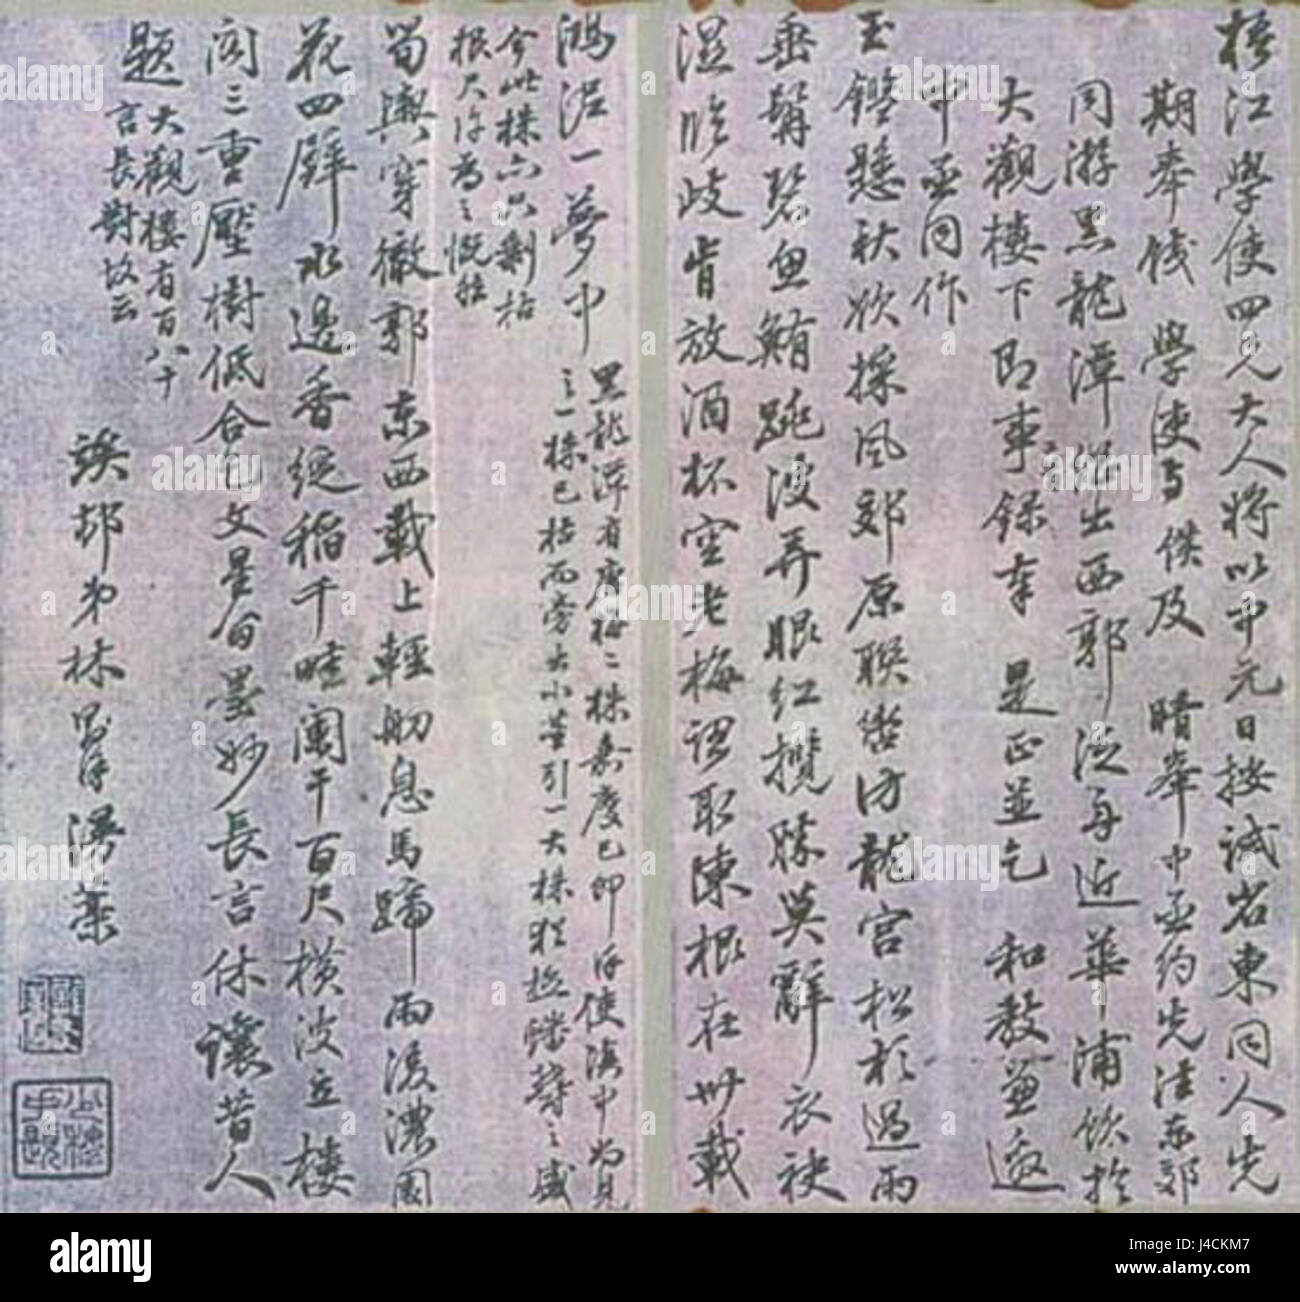 梧江學使四兄大人將以中元日按試岩東同人先
期奉餞 學使與僕及 晴峯中丞約先往東郊
同游黑龍潭繼出西郭泛舟近華浦飲於
大觀樓下即事錄奉 是正並乞 和教兼邀
中丞同作
玉鑑懸秋欲採風郊原聯轡訪龍宮松杉過雨
垂髯碧魚鮪跳波弄眼紅攬勝莫辭衣袂
濕臨歧肯放酒杯空老梅認取陳根在卅載
鴻泥一夢中
黑龍潭有唐梅二株嘉慶己卯余使滇中尚見
之一株已枯而旁大小苗引一大株猶極蟠鬱之盛
今此株亦只剩枯
根尺許為之慨然
筍輿穿徹郭東西載上輕舠息馬蹄雨後濃園
花四壁水邊香繞稻千畦闌干百尺橫波立樓
閣三重壓樹低合乞文星留墨妙長言休讓昔人
題
大觀樓有百八十
言長對故云
竢邨弟林則徐漫藁
a
alamy
alamy stock photo
J4CKM7
www.alamy.com